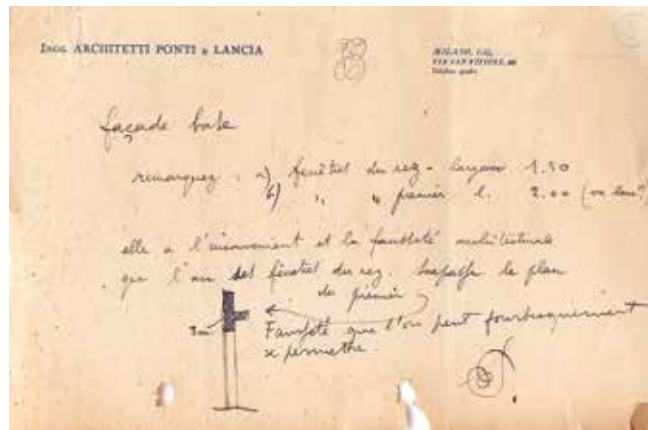 INGG. ARCHITETTI PONTI & LANCIA
MILANO,
VIA SAN VITTORE,
façade
remarquez : a) fenêtres du rez - largeur 1.50
b) " " premier l. 2.00
elle a l'inconvenient et la fausseté architecturale
que l'arc des fenêtres du rez. surpasse le plan
du premier
Fausseté que l'on peut
se permettre.